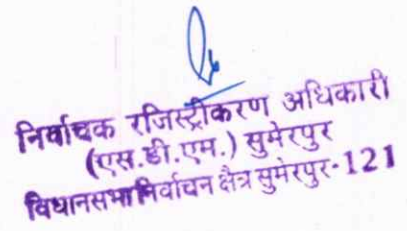 निर्वाचक रजिस्ट्रीकरण अधिकारी
(एस.डी.एम.) सुमेरपुर
विधानसभा निर्वाचन क्षैत्र सुमेरपुर-121